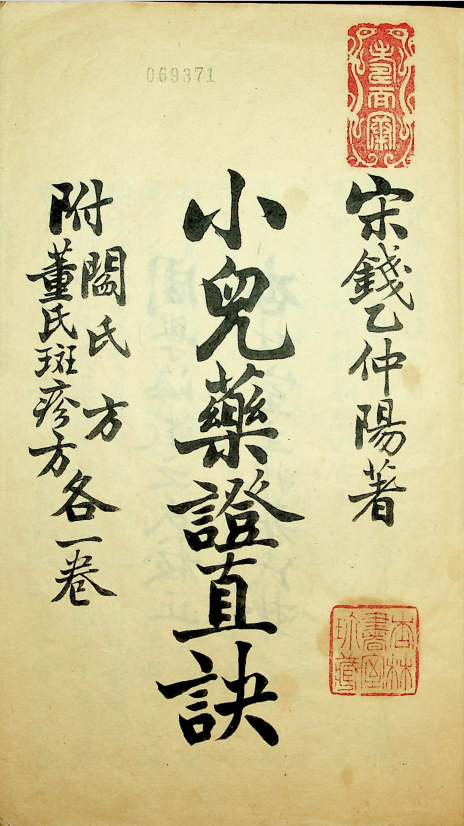 069371
宋錢乙仲陽著
小兒藥證直訣
附
閻氏方
董氏斑疹方
各一卷
杏林
書室
珍藏